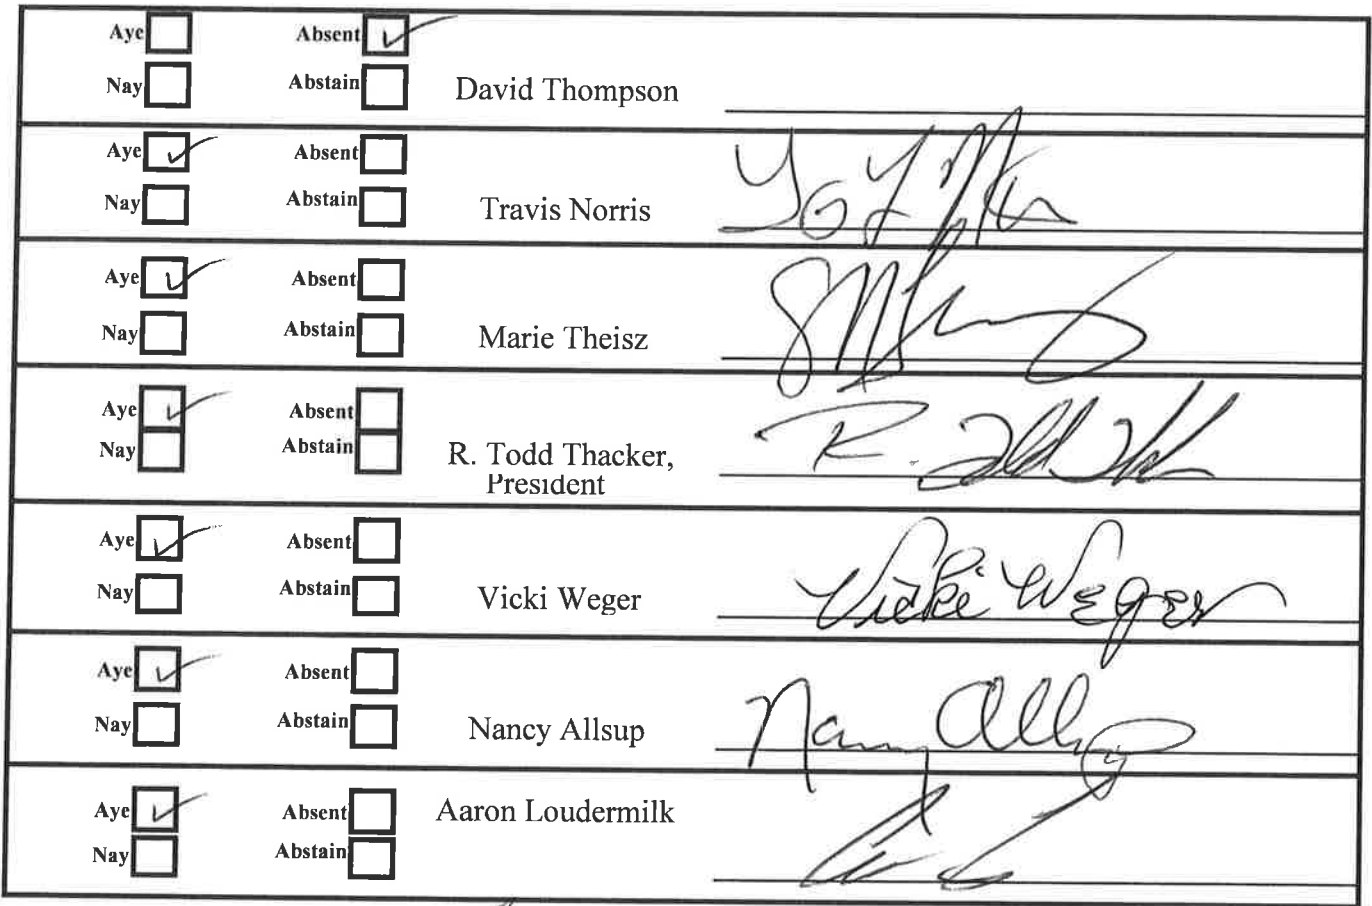 Aye Absent ✓
Nay Abstain David Thompson
Aye ✓ Absent
Nay Abstain Travis Norris
Aye ✓ Absent
Nay Abstain Marie Theisz
Aye ✓ Absent
Nay Abstain R. Todd Thacker,
President
Aye ✓ Absent
Nay Abstain Vicki Weger Vicki Weger
Aye ✓ Absent
Nay Abstain Nancy Allsup Nancy Allsup
Aye ✓ Absent Aaron Loudermilk
Nay Abstain